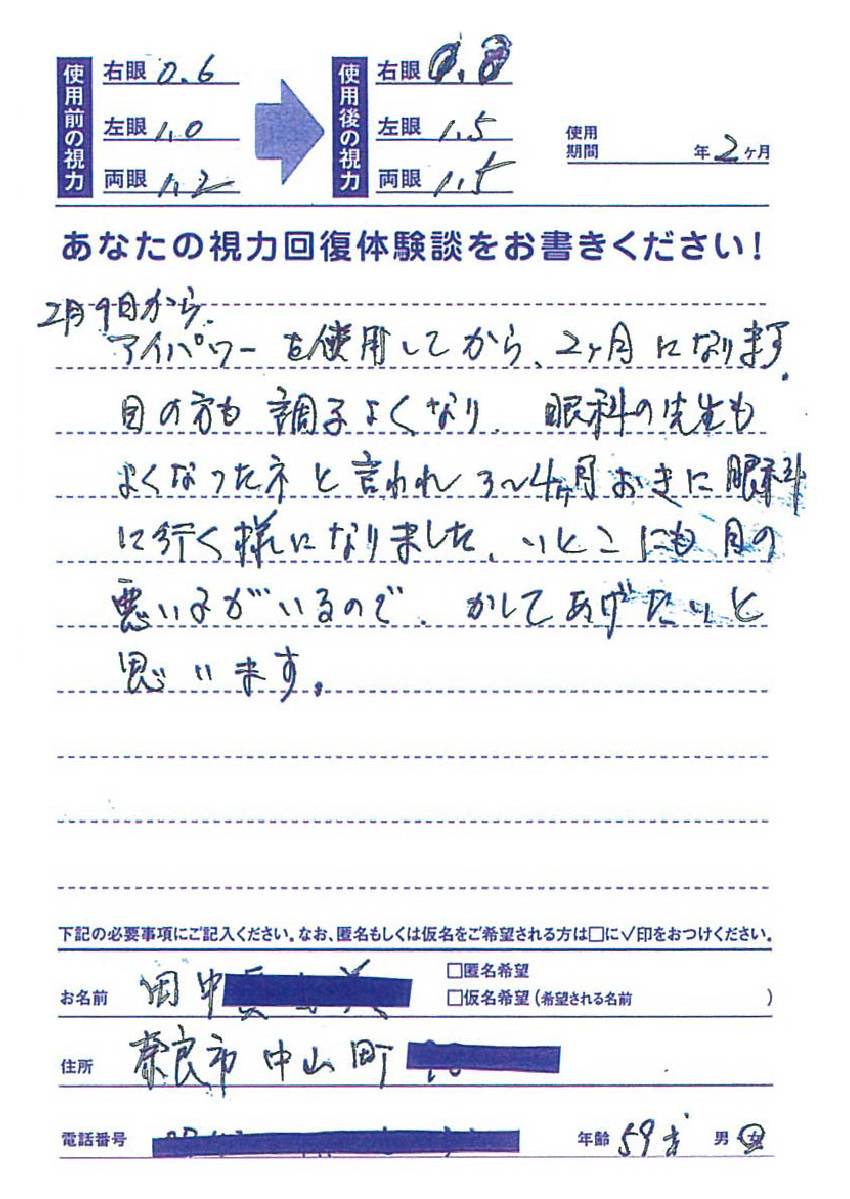 使用前の視力
右眼 0.6
左眼 1.0
両眼 1.2
使用後の視力
右眼 0.8
左眼 1.5
両眼 1.5
使用期間 年 2ヶ月
あなたの視力回復体験談をお書きください!
2月9日から
アイパワーを使用してから、2ヶ月になります。
目の方も調子よくなり、眼科の先生も
よくなったネと言われ3〜4ヶ月おきに眼科
に行く様になりました、いとこにも目の
悪い子がいるので、かしてあげたいと
思います。
下記の必要事項にご記入ください。なお、匿名もしくは仮名をご希望される方は□に✓印をおつけください。
お名前 田中
□匿名希望
□仮名希望(希望される名前 )
住所 奈良市中山町
電話番号
年齢 59才 男 女